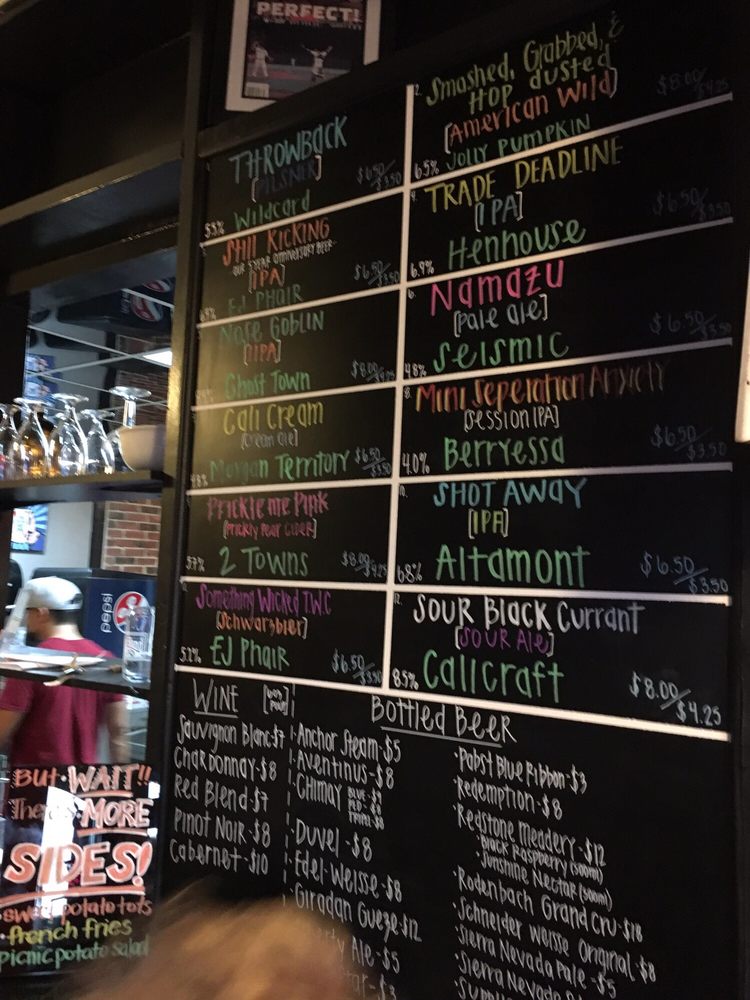 PERFECT!
THROWBACK
[PILSNER]
$6.50/$3.50
5.5% Wildcard
2. Smashed, Grabbed, &
Hop dusted
$8.00/$4.25
[American Wild]
6.5% JOLLY PUMPKIN
SHII KICKING
OUR 5 YEAR ANNIVERSARY BEER
[IPA]
$6.50/$3.50
EJ PHAIR
TRADE DEADLINE
[IPA]
$6.50/$3.50
6.9% Henhouse
Nose Goblin
[IIPA]
$8.00/$4.25
Ghost Town
6. Namazu
[pale ale]
$6.50/$3.50
4.8% Seismic
Cali Cream
[Cream ale]
$6.50/$3.50
4.8% Morgan Territory
8. Mini Seperation Anxiety
[Session IPA]
$6.50/$3.50
4.0% Berryessa
Prickle me Pink
[Prickly Pear Cider]
$8.00/$4.25
5.7% 2 TOWNS
10. SHOT AWAY
[IPA]
$6.50/$3.50
6.8% Altamont
Something Wicked T.W.C
[Schwarzbier]
5.2% EJ Phair
$6.50/$3.50
12. SOUR BLACK Currant
[SOUR ALE]
8.5% Calicraft
$8.00/$4.25
WINE
Sauvignon Blanc $7
Chardonnay - $8
Red Blend - $7
Pinot Noir - $8
Cabernet - $10
Bottled Beer
· Anchor Steam - $5
· Aventinus - $8
· CHIMAY
· Duvel - $8
· Edel-Weisse - $8
· Giradan Gueze $12
Ale - $5
$3
· Pabst Blue Ribbon - $3
· Redemption - $8
· Redstone Meadery - $12
· Black Raspberry (500ml)
· Sunshine Nectar (500ml)
· Rodenbach Grand Cru - $18
· Schneider Weisse Original - $8
· Sierra Nevada Pale - $5
· Sierra Nevada
pepsi
BUT · WAIT!!
There's MORE
SIDES!
· sweet potato tots
· french fries
Picnic potato salad